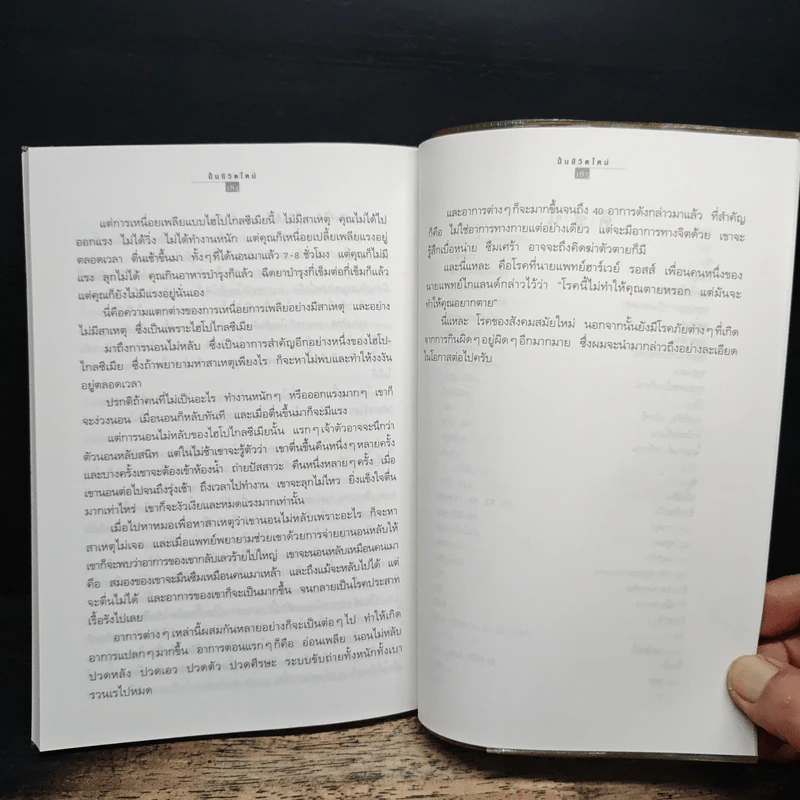 ปั้นชีวิตใหม่
184
แต่การเหนื่อยเพลียแบบไฮโปไกลซีเมียนี้ ไม่มีสาเหตุ คุณไม่ได้ไป
ออกแรง ไม่ได้วิ่ง ไม่ได้ทำงานหนัก แต่คุณก็เหนื่อยเปลี้ยเพลียแรงอยู่
ตลอดเวลา ตื่นเช้าขึ้นมา ทั้งๆที่ได้นอนมาแล้ว 7-8 ชั่วโมง แต่คุณก็ไม่มี
แรง ลุกไม่ได้ คุณกินอาหารบำรุงก็แล้ว ฉีดยาบำรุงกี่เข็มต่อกี่เข็มก็แล้ว
แต่คุณก็ยังไม่มีแรงอยู่นั่นเอง
นี่คือความแตกต่างของการเหนื่อยการเพลียอย่างมีสาเหตุ และอย่าง
ไม่มีสาเหตุ ซึ่งเป็นเพราะไฮโปไกลซีเมีย
มาถึงการนอนไม่หลับ ซึ่งเป็นอาการสำคัญอีกอย่างหนึ่งของไฮโป-
ไกลซีเมีย ซึ่งถ้าพยายามหาสาเหตุเพียงไร ก็จะหาไม่พบและทำให้งงงัน
อยู่ตลอดเวลา
ปรกติถ้าคนที่ไม่เป็นอะไร ทำงานหนักๆ หรือออกแรงมากๆ เขาก็
จะง่วงนอน เมื่อนอนก็หลับทันที และเมื่อตื่นขึ้นมาก็จะมีแรง
แต่การนอนไม่หลับของไฮโปไกลซีเมียนั้น แรกๆเจ้าตัวอาจจะนึกว่า
ตัวนอนหลับสนิท แต่ในไม่ช้าเขาจะรู้ตัวว่า เขาตื่นขึ้นคืนหนึ่งๆหลายครั้ง
และบางครั้งเขาจะต้องเข้าห้องน้ำ ถ่ายปัสสาวะ คืนหนึ่งหลายๆครั้ง เมื่อ
เขานอนต่อไปจนถึงรุ่งเช้า ถึงเวลาไปทำงาน เขาจะลุกไม่ไหว ยิ่งแข็งใจตื่น
มากเท่าไหร่ เขาก็จะงัวเงียและหมดแรงมากเท่านั้น
เมื่อไปหาหมอเพื่อหาสาเหตุว่าเขานอนไม่หลับเพราะอะไร ก็จะหา
สาเหตุไม่เจอ และเมื่อแพทย์พยายามช่วยเขาด้วยการจ่ายยานอนหลับให้
เขาก็จะพบว่าอาการของเขากลับเลวร้ายไปใหญ่ เขาจะนอนหลับเหมือนคนเมา
คือ สมองของเขาจะมึนซึมเหมือนคนเมาเหล้า และถึงแม้จะหลับไปได้ แต่
จะตื่นไม่ได้ และอาการของเขาก็จะเป็นมากขึ้น จนกลายเป็นโรคประสาท
เรื้อรังไปเลย
อาการต่างๆเหล่านี้ผสมกันหลายอย่างก็จะเป็นต่อๆไป ทำให้เกิด
อาการแปลกๆมากขึ้น อาการตอนแรกๆก็คือ อ่อนเพลีย นอนไม่หลับ
ปวดหลัง ปวดเอว ปวดตัว ปวดศีรษะ ระบบขับถ่ายทั้งหนักทั้งเบา
รวนเรไปหมด
ปั้นชีวิตใหม่
185
และอาการต่างๆก็จะมากขึ้นจนถึง 40 อาการดังกล่าวมาแล้ว ที่สำคัญ
ก็คือ ไม่ใช่อาการทางกายแต่อย่างเดียว แต่จะมีอาการทางจิตด้วย เขาจะ
รู้สึกเบื่อหน่าย ซึมเศร้า อาจจะถึงคิดฆ่าตัวตายก็มี
และนี่แหละ คือโรคที่นายแพทย์ฮาร์เวย์ รอสส์ เพื่อนคนหนึ่งของ
นายแพทย์ไกแลนด์กล่าวไว้ว่า “โรคนี้ไม่ทำให้คุณตายหรอก แต่มันจะ
ทำให้คุณอยากตาย”
นี่แหละ โรคของสังคมสมัยใหม่ นอกจากนั้นยังมีโรคภัยต่างๆที่เกิด
จากการกินผิดๆอยู่ผิดๆอีกมากมาย ซึ่งผมจะนำมากล่าวถึงอย่างละเอียด
ในโอกาสต่อไปครับ